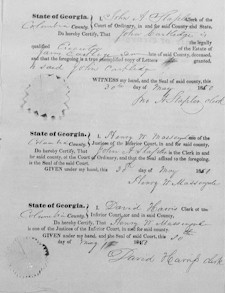 State of Georgia.
Columbia County.
I John A Shaffer Clerk of the
Court of Ordinary, in and for said County and State,
Do hereby Certify, That John Cartledge
is the legally
qualified Executor of the Estate of
of said County, deceased,
and that the foregoing is a true exemplified copy of Letters
to said John Cartledge
WITNESS my hand, and the Seal of said county, this
30th day of May
Clerk
State of Georgia.
County.
I Henry W. Massengale
Justices of the Inferior Court, in and for said county,
Do hereby Certify, That is the Clerk in and
for said county, of the Court of Ordinary, and that the Seal affixed to the foregoing,
is the Seal of said Court.
GIVEN under my hand, this 30th day of May
Henry W Massengale
State of Georgia.
Columbia County.
I David Harris Clerk of the
Inferior Court, for and in said county,
Do hereby Certify, That Henry W Massengale
is one of the Justices of the Inferior Court, in and for said county.
GIVEN under my hand, and the Seal of said Court, this 30th
day of May
David Harris Clerk